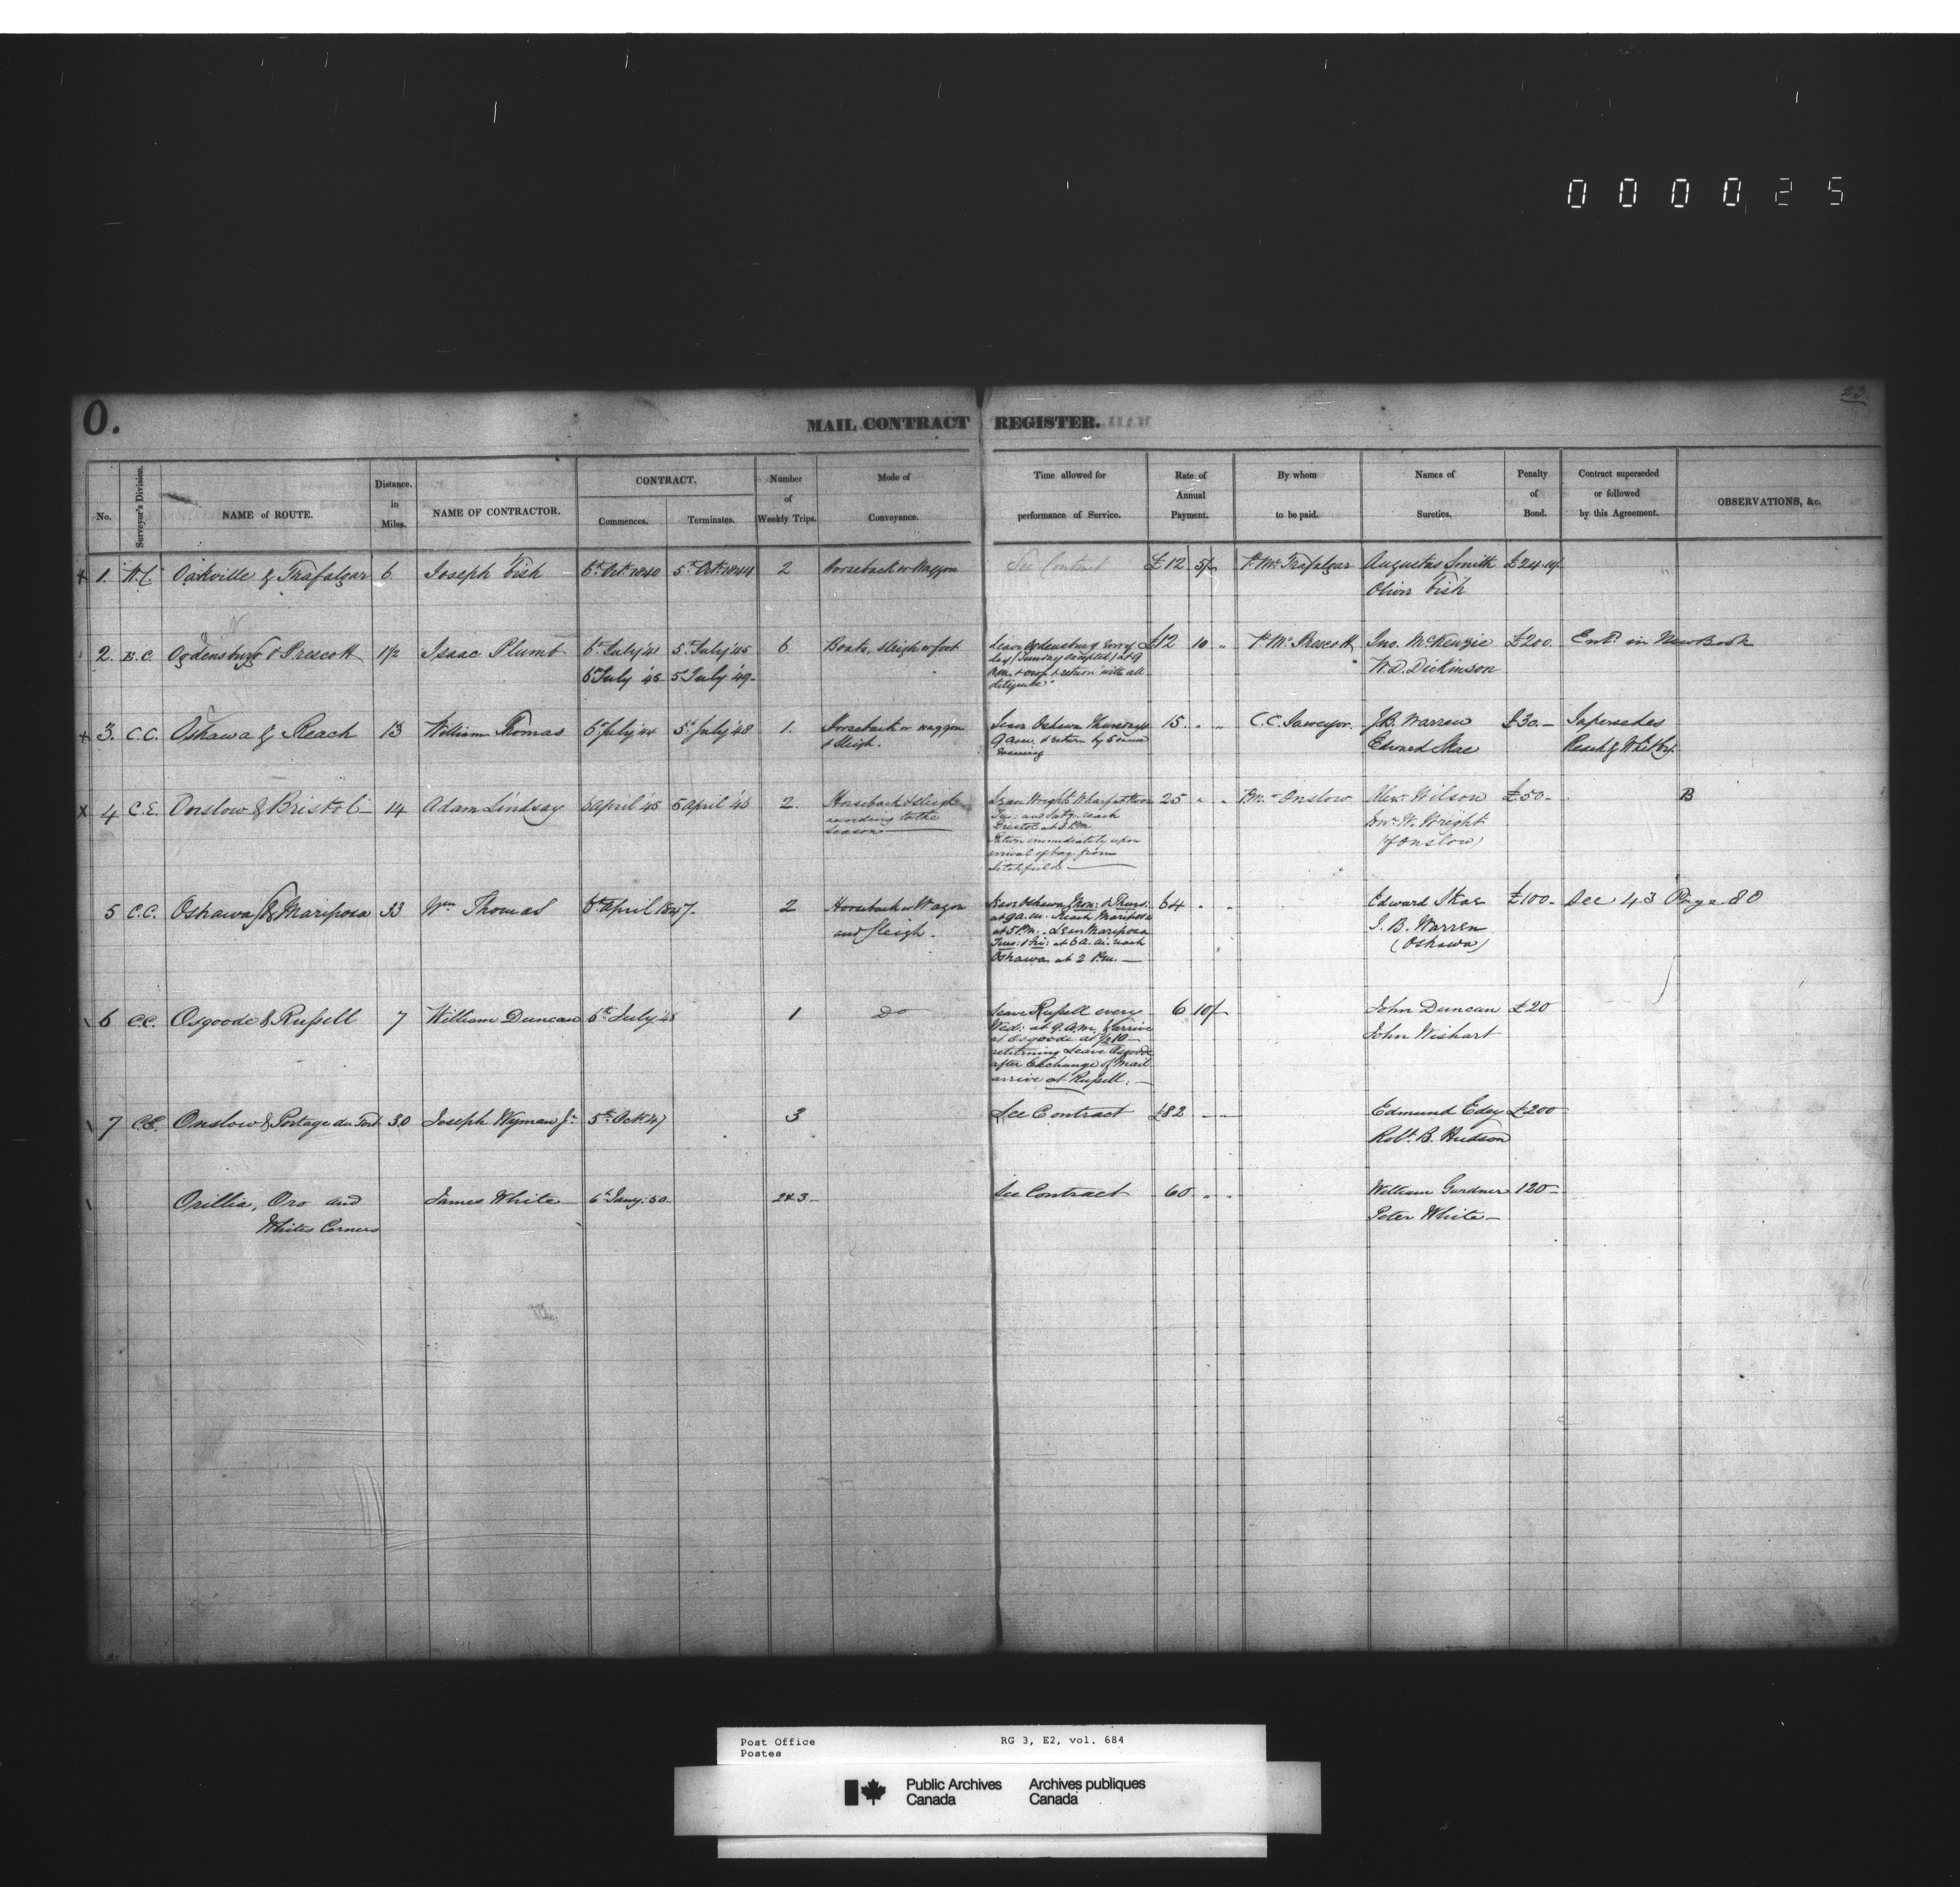 000025
23
O.
MAIL CONTRACT REGISTER.
No. Surveyor's Division. NAME of ROUTE. Distance. in Miles. NAME OF CONTRACTOR. CONTRACT. Commences. Terminates. Number of Weekly Trips. Mode of Conveyance. Time allowed for performance of Service. Rate of Annual Payment. By whom to be paid. Names of Sureties. Penalty of Bond. Contract superseded or followed by this Agreement. OBSERVATIONS, &c.
x 1. Oakville & Trafalgar 6 Joseph Fish 6th Octr 1840 5th Octr 1844 2 Horseback or Waggon See Contract £12 5/- P. Mr Trafalgar Augustus Smith £24.10/-
Oliver Fish
2. E.C. Ogdensburg & Prescott 1½ Isaac Plumb 6th July '41 5th July '45 6 Boats, sleigh or foot Leave Ogdensburg every £12 10 " P. Mr Prescott Jno. McKenzie £200. Entd. in New Book
day (Sunday excepted) at 9
6th July '45 5 July '49 A.M. & cross & return "with all W.D. Dickinson
diligence"
x 3. C.C. Oshawa & Reach 13 William Thomas 6th July '44 5th July '48 1. Horseback or waggon Leave Oshawa Thursdays 15 " " C.C. Sawyer J.B. Warren £30.- Supersedes
& sleigh. 9 a.m. & return by same Edward Skae Reach & Whitby.
evening
x 4 C.E. Onslow & Bristol 14 Adam Lindsay April '45 5 April '48 2 Horseback & sleigh Leave Wright's Wharf at Noon 25 " " P.Mr Onslow Alexr Wilson £50- B
according to the Tues: and Saty: reach
season Bristol at 3 P.M. W. Wright
Return immediately upon (of Onslow)
arrival of bag from
Litchfield
5 C.C. Oshawa & Mariposa 33 Wm Thomas 6th April 1847. 2 Horseback or Wagon Leave Oshawa Mon: & Thurs: 64 " " Edward Skae £100- See 43 Page 80
and Sleigh. at 9 a.m. Reach Mariposa J. B. Warren
at 5 P.M. Leave Mariposa (Oshawa)
Tues: & Fri: at 6 a.m. reach
Oshawa at 2 P.m.
6 C.C. Osgoode & Russell 7 William Duncan 6th July '48 1 Do Leave Russell every 6 10/- John Duncan £20
Wed: at 9 a.m. & arrive John Wishart
at Osgoode at
returning Leave Osgoode
after Exchange of Mail
arrive at Russell.
7 C.E. Onslow & Portage du Fort 30 Joseph Wyman Jr 5th Oct '47 3 See Contract £82 " " Edmund Edey £200
Robt. B. Hudson
Orillia, Oro and James White 6th Jany: 50 2 & 3 See Contract 60 " " William Gardner 120-
Whites Corners Peter White
Post Office RG 3, E2, vol. 684
Postes
Public Archives Archives publiques
Canada Canada